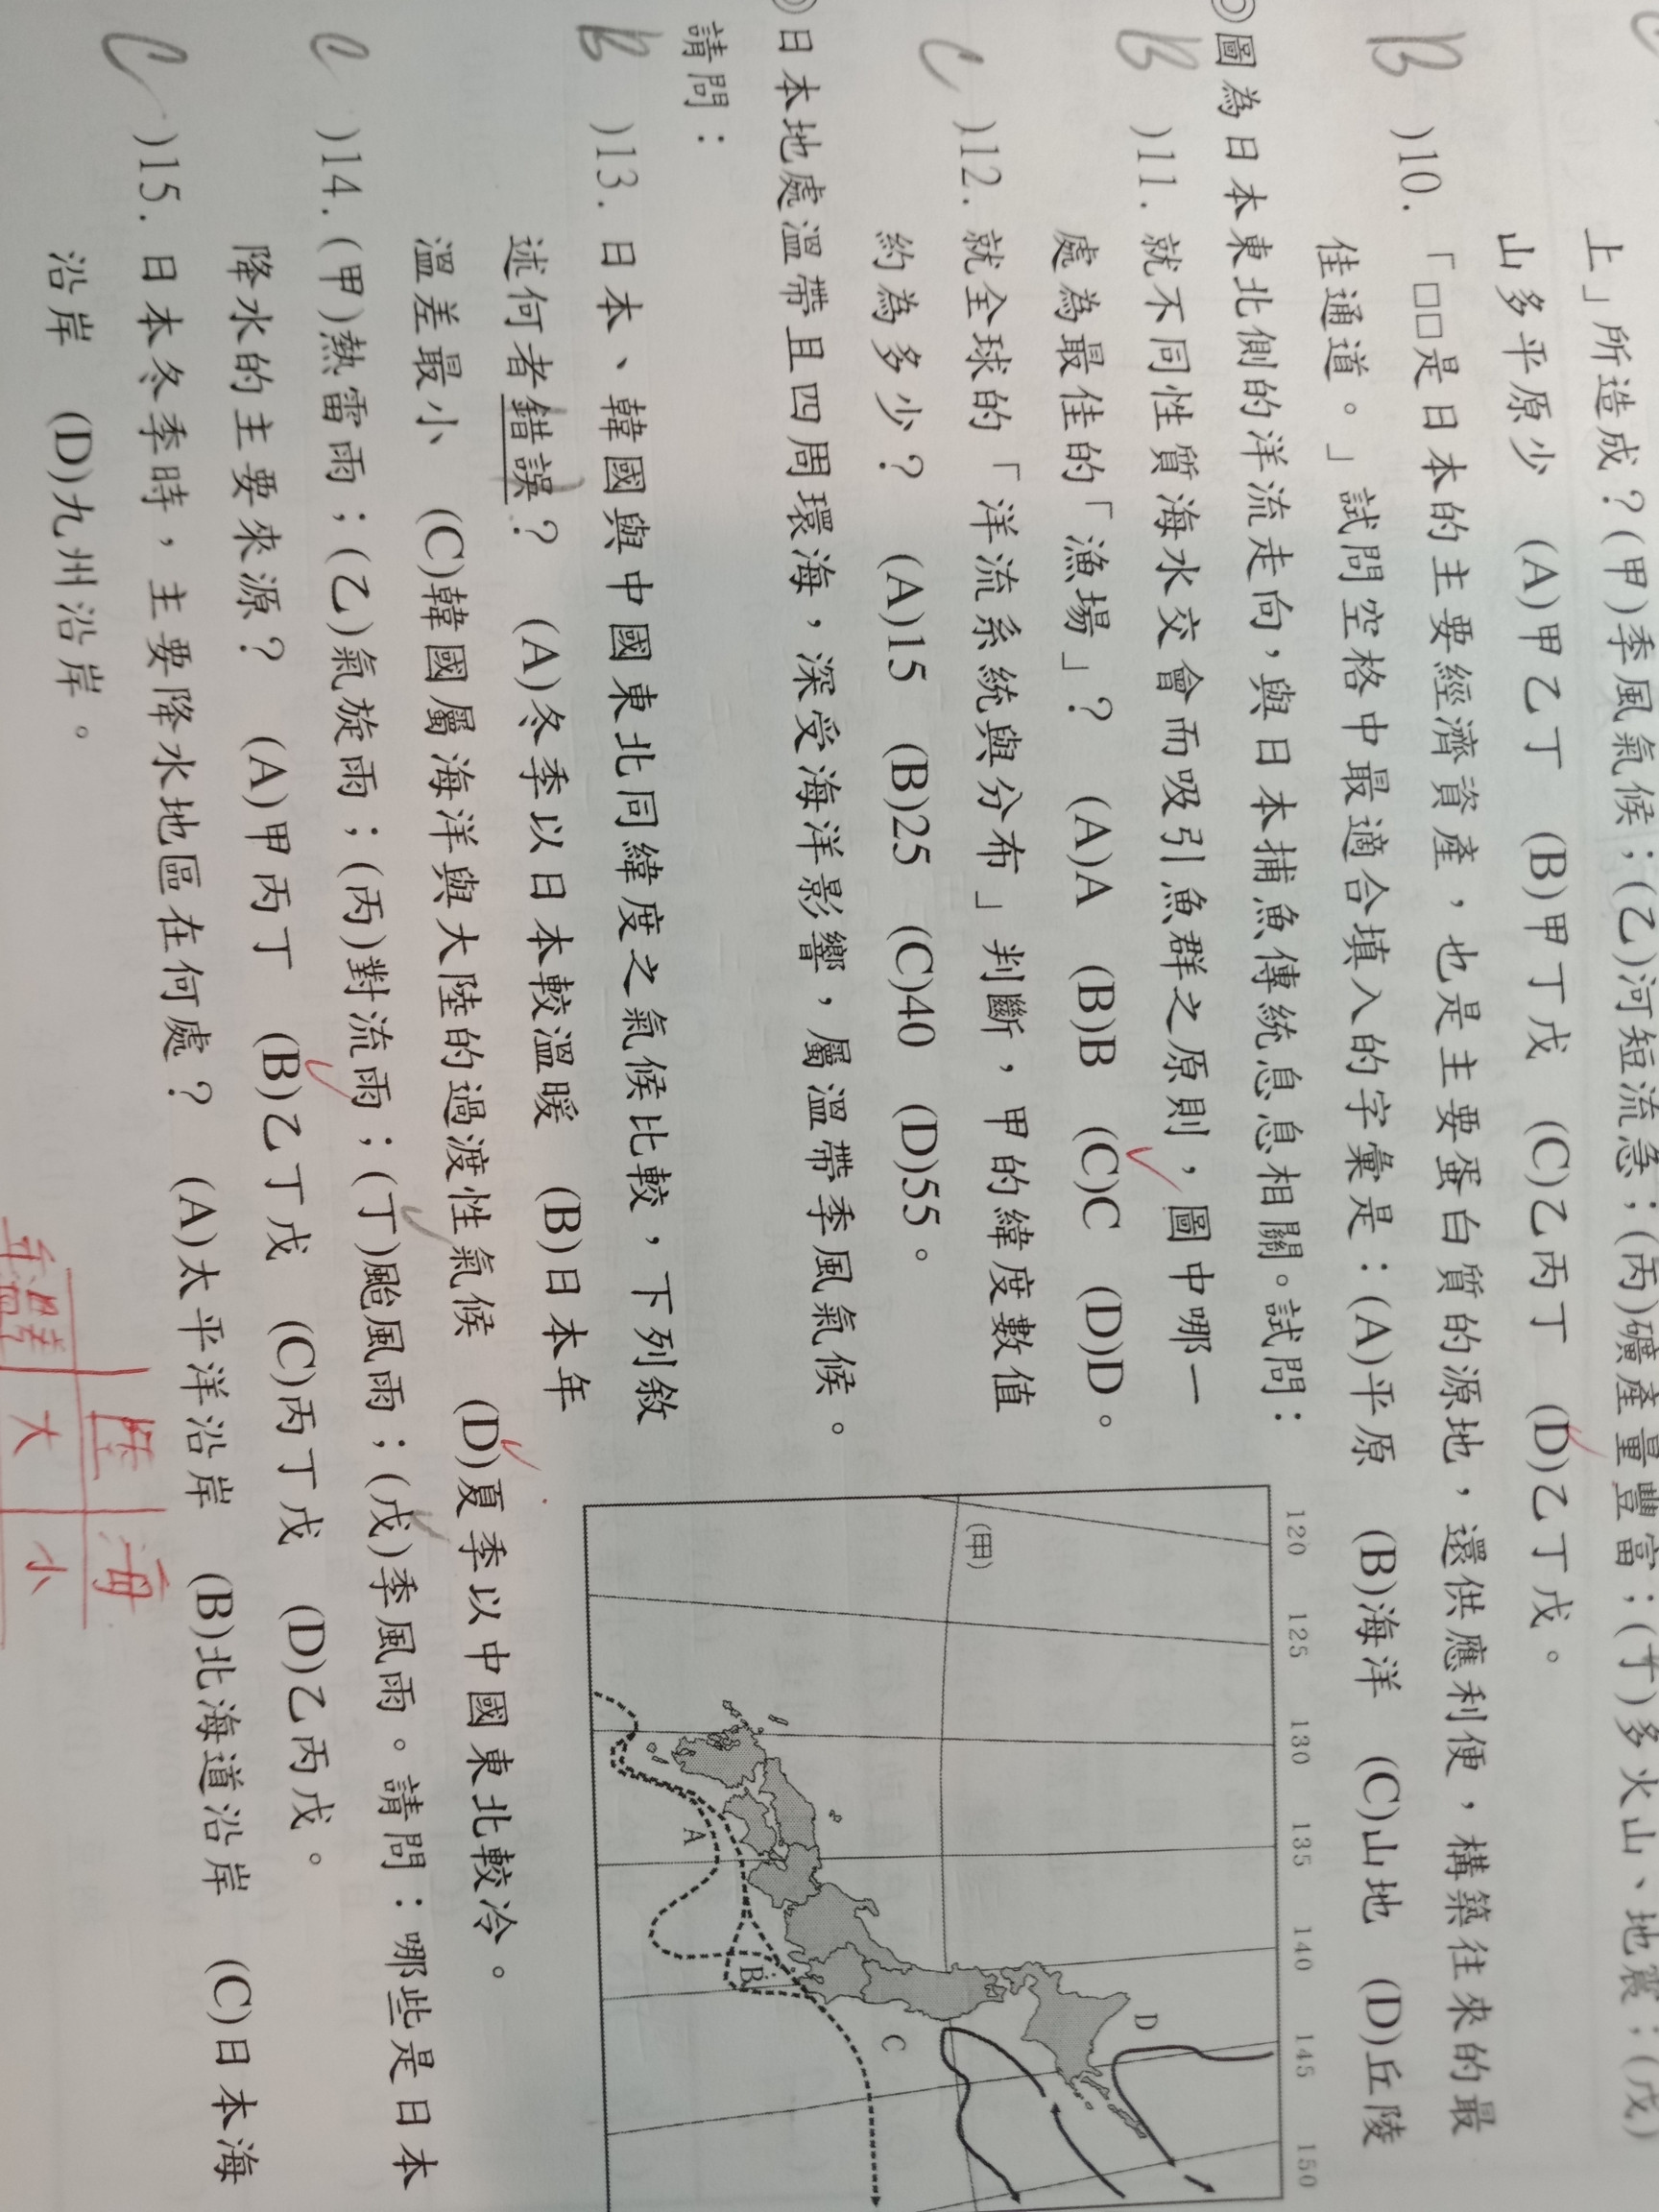 上」所造成?(甲)季風氣候;(乙)河短流急;(丙)礦產量豐富;(丁)多火山、地震;(戊)
山多平原少　(A)甲乙丁　(B)甲丁戊　(C)乙丙丁　(D)乙丁戊。
B )10.「□□是日本的主要經濟資產,也是主要蛋白質的源地,還供應利便,構築往來的最
佳通道。」試問空格中最適合填入的字彙是:(A)平原　(B)海洋　(C)山地　(D)丘陵
◎圖為日本東北側的洋流走向,與日本捕魚傳統息息相關。試問:
B )11.就不同性質海水交會而吸引魚群之原則,圖中哪一
處為最佳的「漁場」?　(A)A　(B)B　(C)C　(D)D。
C )12.就全球的「洋流系統與分布」判斷,甲的緯度數值
約為多少?　(A)15　(B)25　(C)40　(D)55。
◎日本地處溫帶且四周環海,深受海洋影響,屬溫帶季風氣候。
請問:
B )13.日本、韓國與中國東北同緯度之氣候比較,下列敘
述何者錯誤?　(A)冬季以日本較溫暖　(B)日本年
溫差最小　(C)韓國屬海洋與大陸的過渡性氣候　(D)夏季以中國東北較冷。
C )14.(甲)熱雷雨;(乙)氣旋雨;(丙)對流雨;(丁)颱風雨;(戊)季風雨。請問:哪些是日本
降水的主要來源?　(A)甲丙丁　(B)乙丁戊　(C)丙丁戊　(D)乙丙戊。
C )15.日本冬季時,主要降水地區在何處?　(A)太平洋沿岸　(B)北海道沿岸　(C)日本海
沿岸　(D)九州沿岸。
120 125 130 135 140 145 150
(甲)
D
C
B
A
陸 海
年溫差 大 小